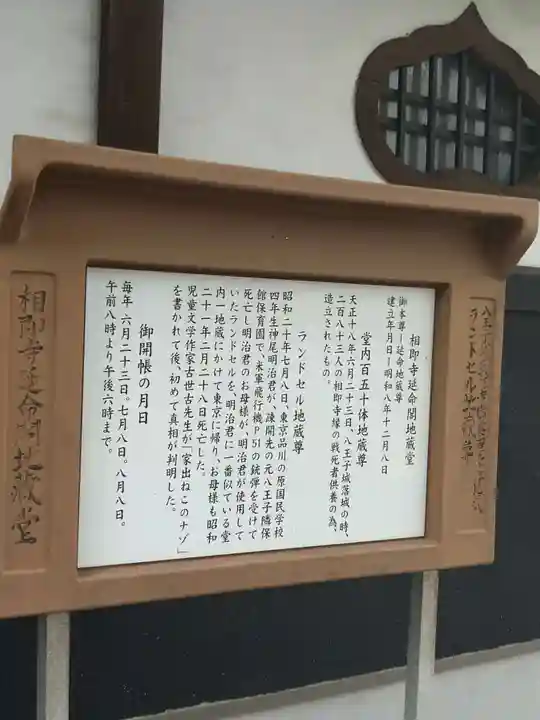 相即寺延命閣地蔵堂
御本尊ー延命地蔵尊
建立年月日ー明和八年十二月八日
堂内百五十体地蔵尊
天正十八年六月二十三日、八王子城落城の時、
二百八十三人の相即寺縁の戦死者供養の為、
造立されたもの。
ランドセル地蔵尊
昭和二十年七月八日、東京品川の原国民学校
四年生神尾明治君が、疎開先の元八王子隣保
館保育園で、米軍飛行機P51の銃弾を受けて
死亡し明治君のお母様が、明治君が使用して
いたランドセルを、明治君に一番似ている堂
内一地蔵にかけて東京に帰り、お母様も昭和
二十一年二月二十八日死亡した。
児童文学作家古世古先生が「家出ねこのナゾ」
を書かれて後、初めて真相が判明した。
御開帳の月日
毎年 六月二十三日。七月八日。八月八日。
午前八時より午後六時まで。
相即寺延命閣地蔵堂
ランドセル地蔵